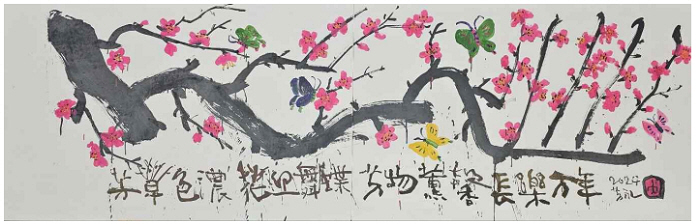 芳草色濃花迎舞蝶 芳物薰馨長樂万年 2024